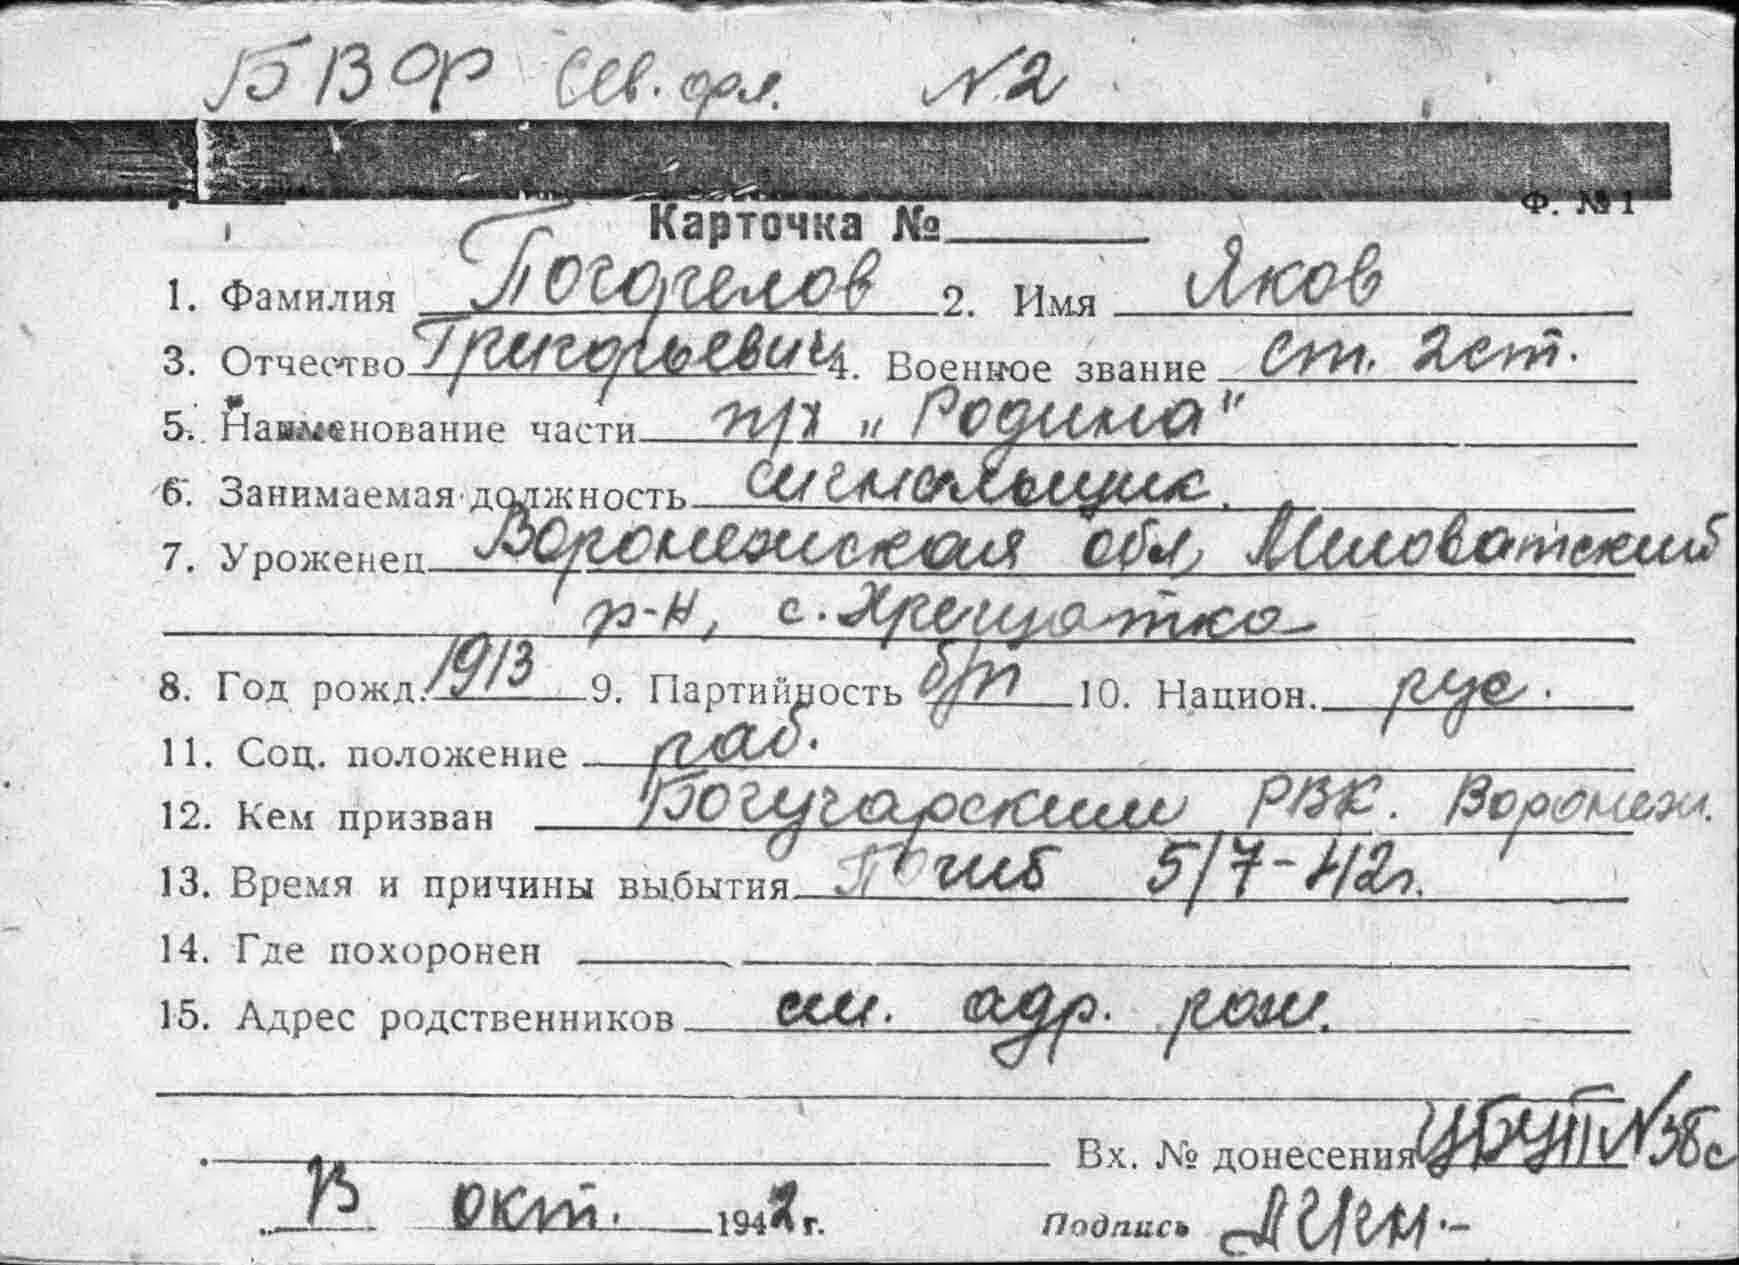 БВОР Сев. фл. N.2
Ф. № 1
Карточка №
1. Фамилия Погорелов 2. Имя Яков
3. Отчество Григорьевич 4. Военное звание ст. 2 ст.
5. Наименование части п/х „Родина"
6. Занимаемая должность сигнальщик.
7. Уроженец Воронежская обл, Миловатский
р-н, с. Хрещатко
8. Год рожд. 1913 9. Партийность б/п 10. Национ. рус.
11. Соц. положение раб.
12. Кем призван Богучарским РВК. Воронеж.
13. Время и причины выбытия Погиб 5/7-42г.
14. Где похоронен
15. Адрес родственников см. адр. рож.
Вх. № донесения N38с
окт. 1942 г. Подпись